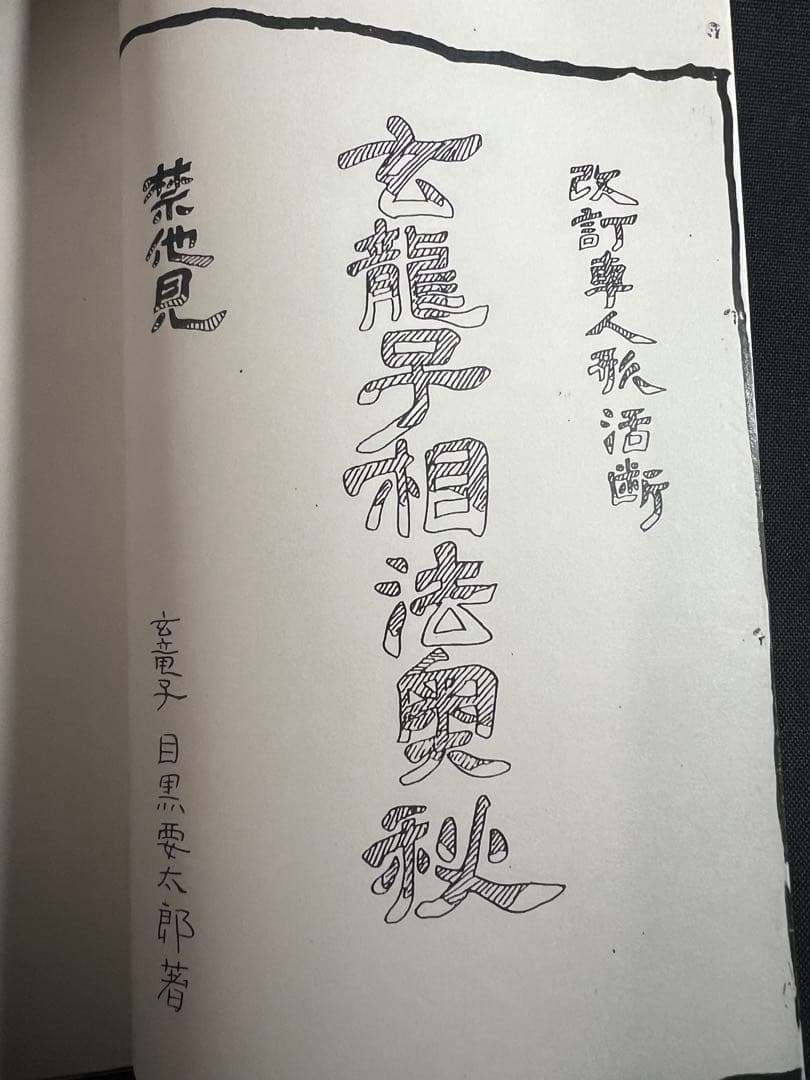 改訂車人形活断
玄龍子相法奥秋
禁他見
玄竜子 目黒要太郎著